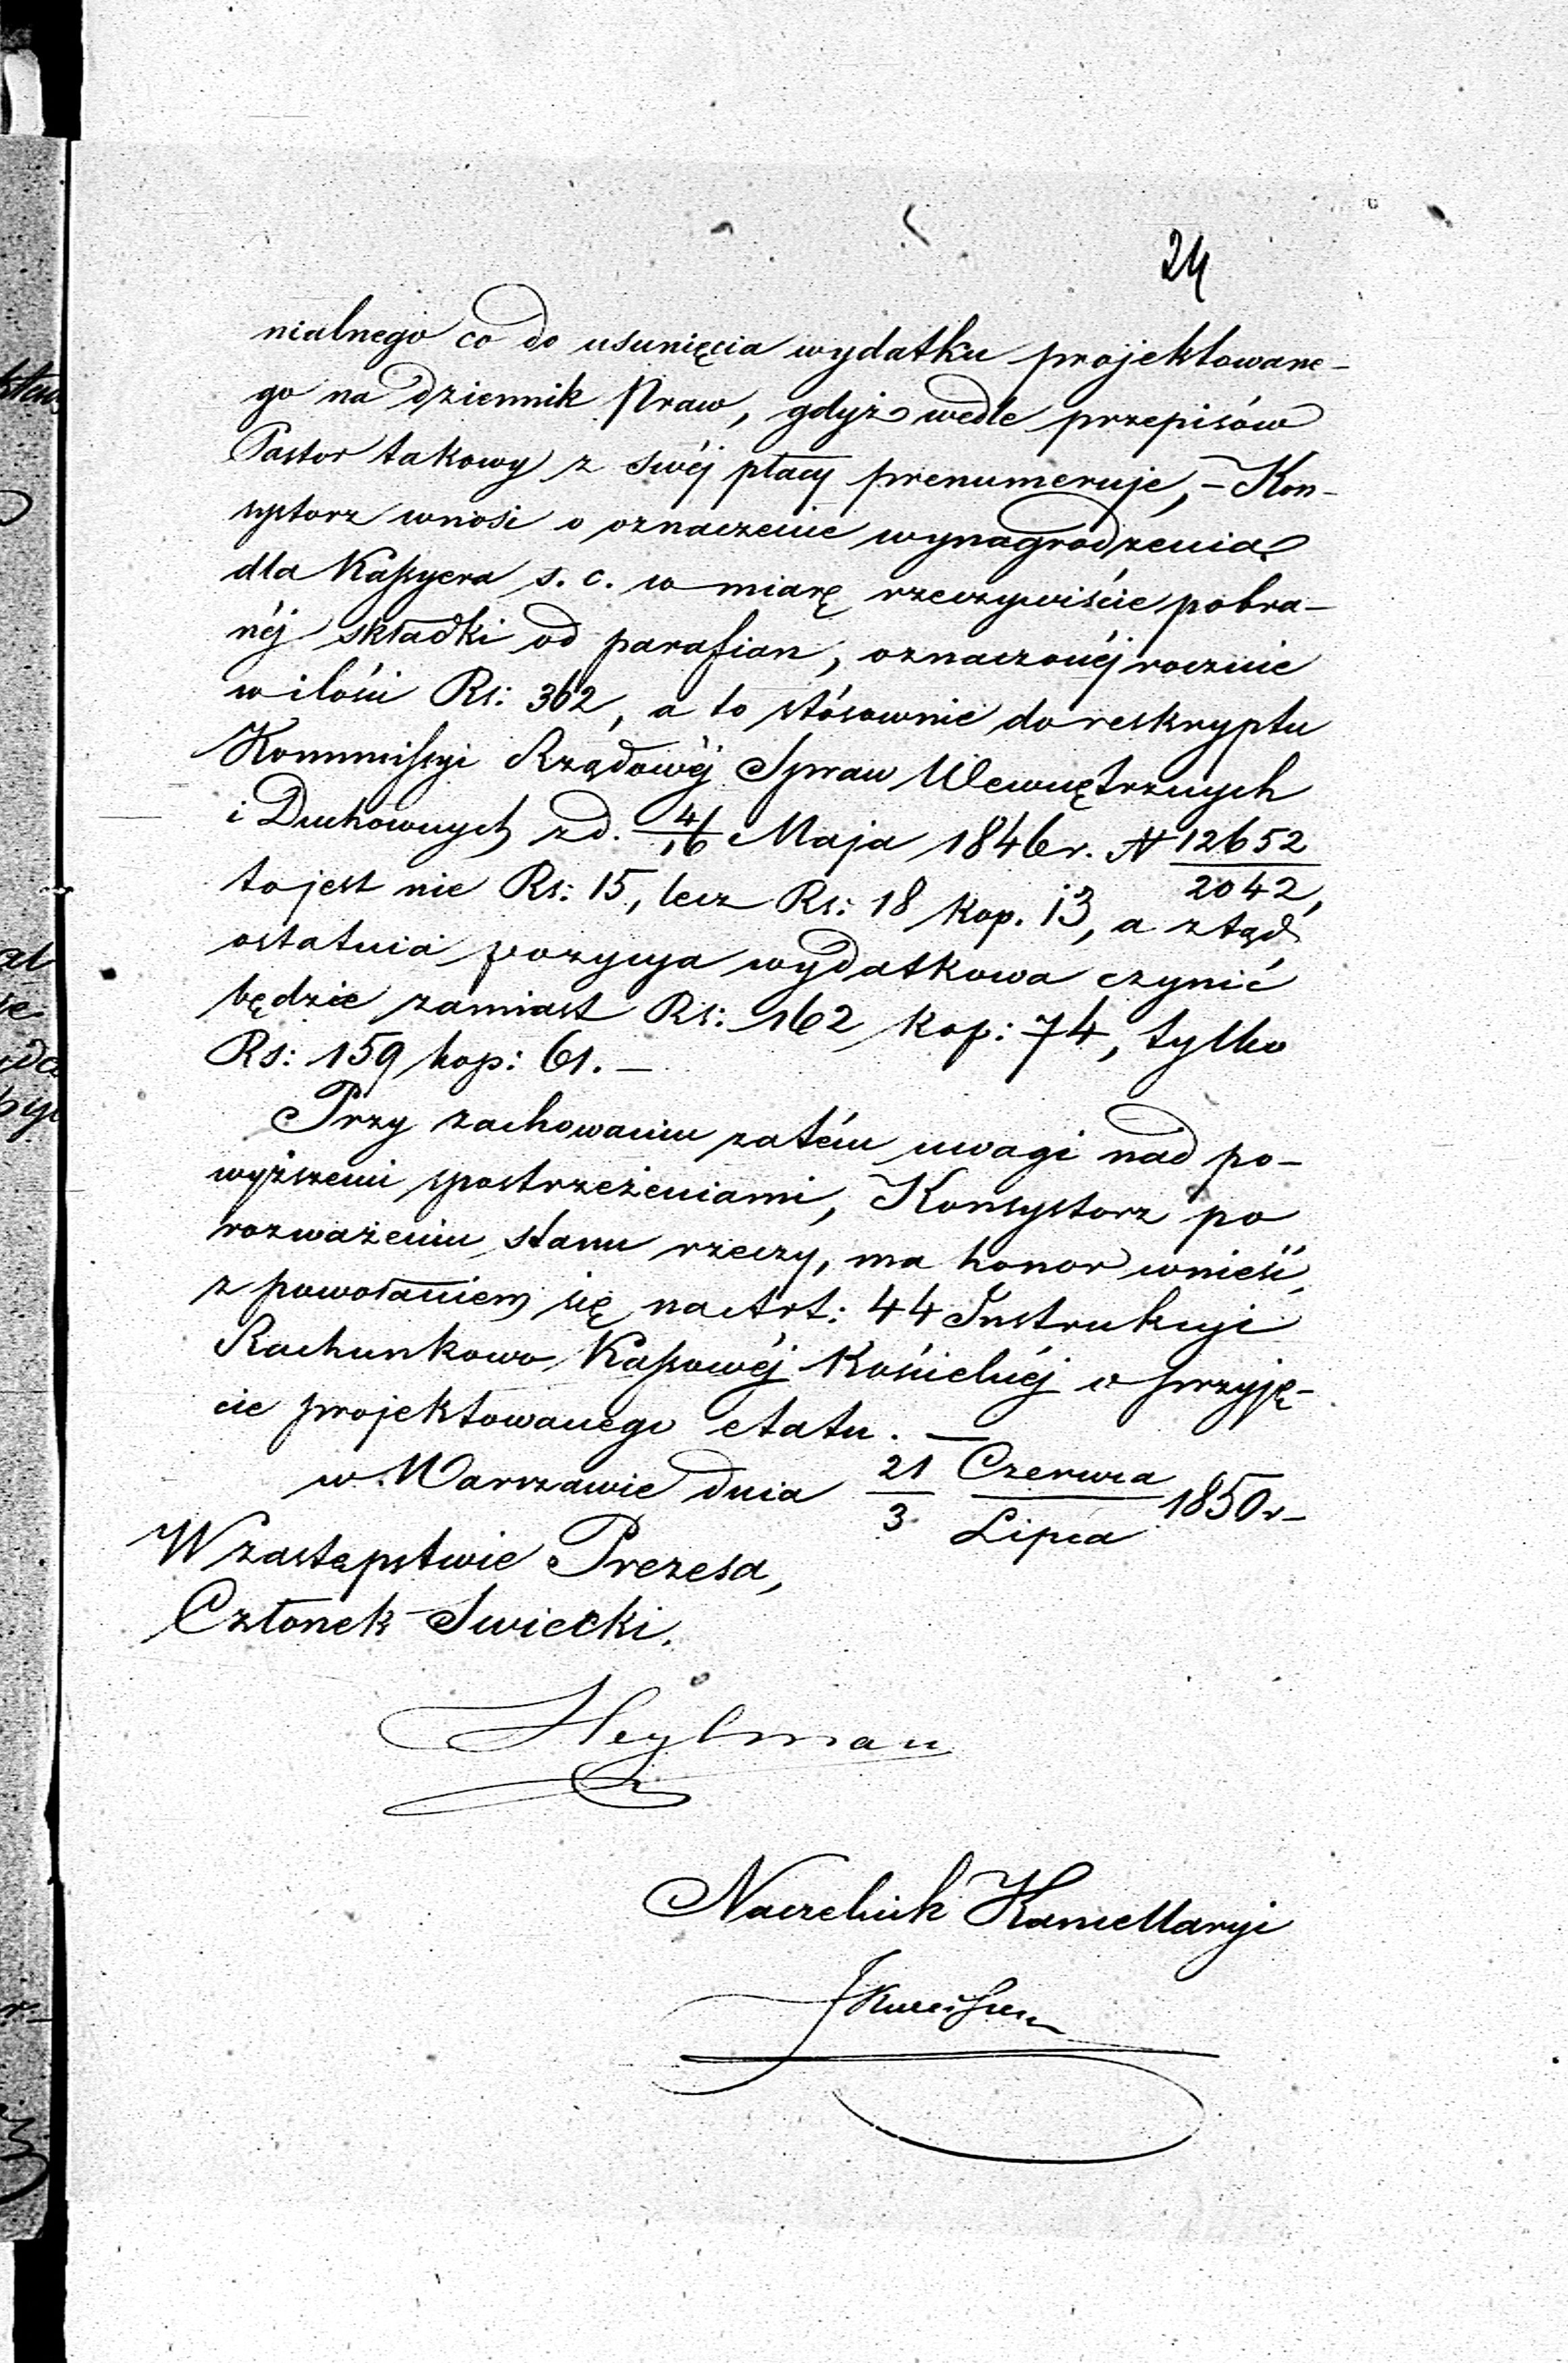 24
nialnego co do usunięcia wydatku projektowane-
go na dziennik Praw, gdyż wedle przepisów
Pastor takowy z swéj płacy prenumeruje, – Kon-
systorz wnosi o oznaczenie wynagrodzenia
dla Kassyera s. c. w miarę rzeczywiście pobra-
néj składki od parafian, oznaczonéj rocznie
w ilości Rs: 362, a to stósownie do reskryptu
Kommissyi Rządowéj Spraw Wewnętrznych
i Duchownych z d. 4/16 Maja 1846 r. N 12652/2042,
to jest nie Rs: 15, lecz Rs: 18 kop. 13, a ztąd
ostatnia pozycya wydatkowa czynić
będzie zamiast Rs: 162 kop: 74, tylko
Rs: 159 kop: 61. –
Przy zachowaniu zatém uwagi nad po-
wyższemi spostrzeżeniami, Konsystorz po
rozważeniu stanu rzeczy, ma honor wnieść,
z powołaniem się na Art: 44 Instrukcyi
Rachunkowo Kassowéj Kościelnéj o przyję-
cie projektowanego etatu. –
w Warszawie dnia 21/3 Czerwca/Lipca 1850 r –
W zastępstwie Prezesa,
Członek Swiecki.
Heylman
Naczelnik Kancellaryi